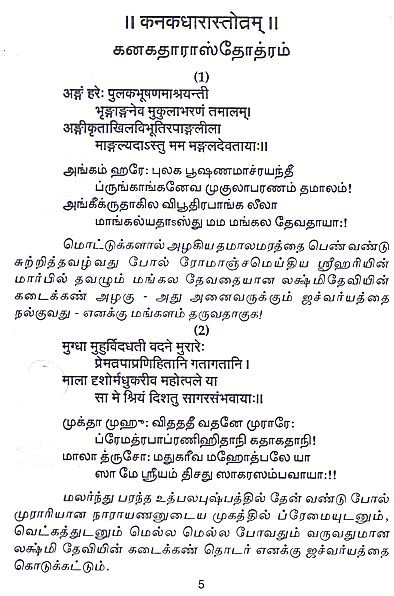 ॥ कनकधारास्तोत्रम् ॥
கனகதாராஸ்தோத்ரம்
(1)
अङ्गं हरेः पुलकभूषणमाश्रयन्ती
भृङ्गाङ्गनेव मुकुलाभरणं तमालम्।
अङ्गीकृताखिलविभूतिरपाङ्गलीला
माङ्गल्यदाऽस्तु मम मङ्गलदेवतायाः॥
அங்கம் ஹரே: புலக பூஷணமாச்ரயந்தீ
ப்ருங்காங்கனேவ முகுலாபரணம் தமாலம்!
அங்கீக்ருதாகில விபூதிரபாங்க லீலா
மாங்கல்யதாஸ்து மம மங்கல தேவதாயா:!
மொட்டுக்களால் அழகிய தமாலமரத்தை பெண் வண்டு
சுற்றித்தவழ்வது போல் ரோமாஞ்சமெய்திய ஸ்ரீஹரியின்
மார்பில் தவழும் மங்கல தேவதையான லக்ஷ்மிதேவியின்
கடைக்கண் அழகு - அது அனைவருக்கும் ஐச்வர்யத்தை
நல்குவது - எனக்கு மங்களம் தருவதாகுக!
(2)
मुग्धा मुहुर्विदधती वदने मुरारेः
प्रेमत्रपाप्रणिहितानि गतागतानि।
माला दृशोर्मधुकरीव महोत्पले या
सा मे श्रियं दिशतु सागरसंभवायाः॥
முக்தா முஹு: விதததீ வதனே முராரே:
ப்ரேமத்ரபாப்ரணிஹிதாநி கதாகதாநி!
மாலா த்ருசோ: மதுகரீவ மஹோத்பலே யா
ஸா மே ஸ்ரீயம் திசது ஸாகரஸம்பவாயா:!!
மலர்ந்து பரந்த உத்பலபுஷ்பத்தில் தேன் வண்டு போல்
முராரியான நாராயணனுடைய முகத்தில் ப்ரேமையுடனும்,
வெட்கத்துடனும் மெல்ல மெல்ல போவதும் வருவதுமான
லக்ஷ்மி தேவியின் கடைக்கண் தொடர் எனக்கு ஐச்வர்யத்தை
கொடுக்கட்டும்.
5